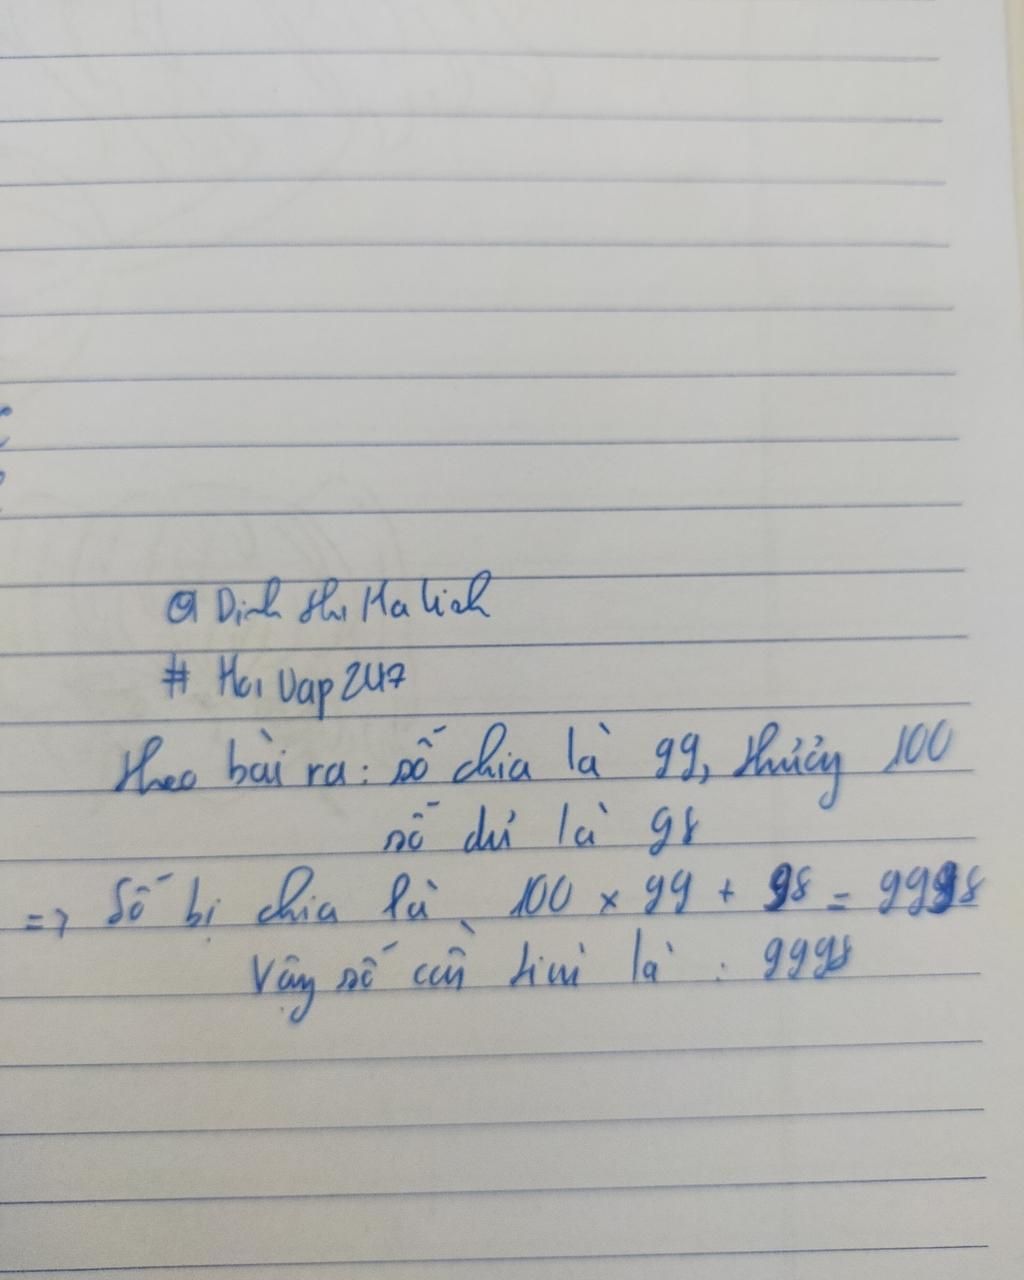 @ Dinh Thi Ha Linh
# Hoi Dap 247
Theo bài ra: số chia là 99, thương 100
số dư là 98
=> Số bị chia là 100 x 99 + 98 = 9998
Vậy số cần tìm là : 9998